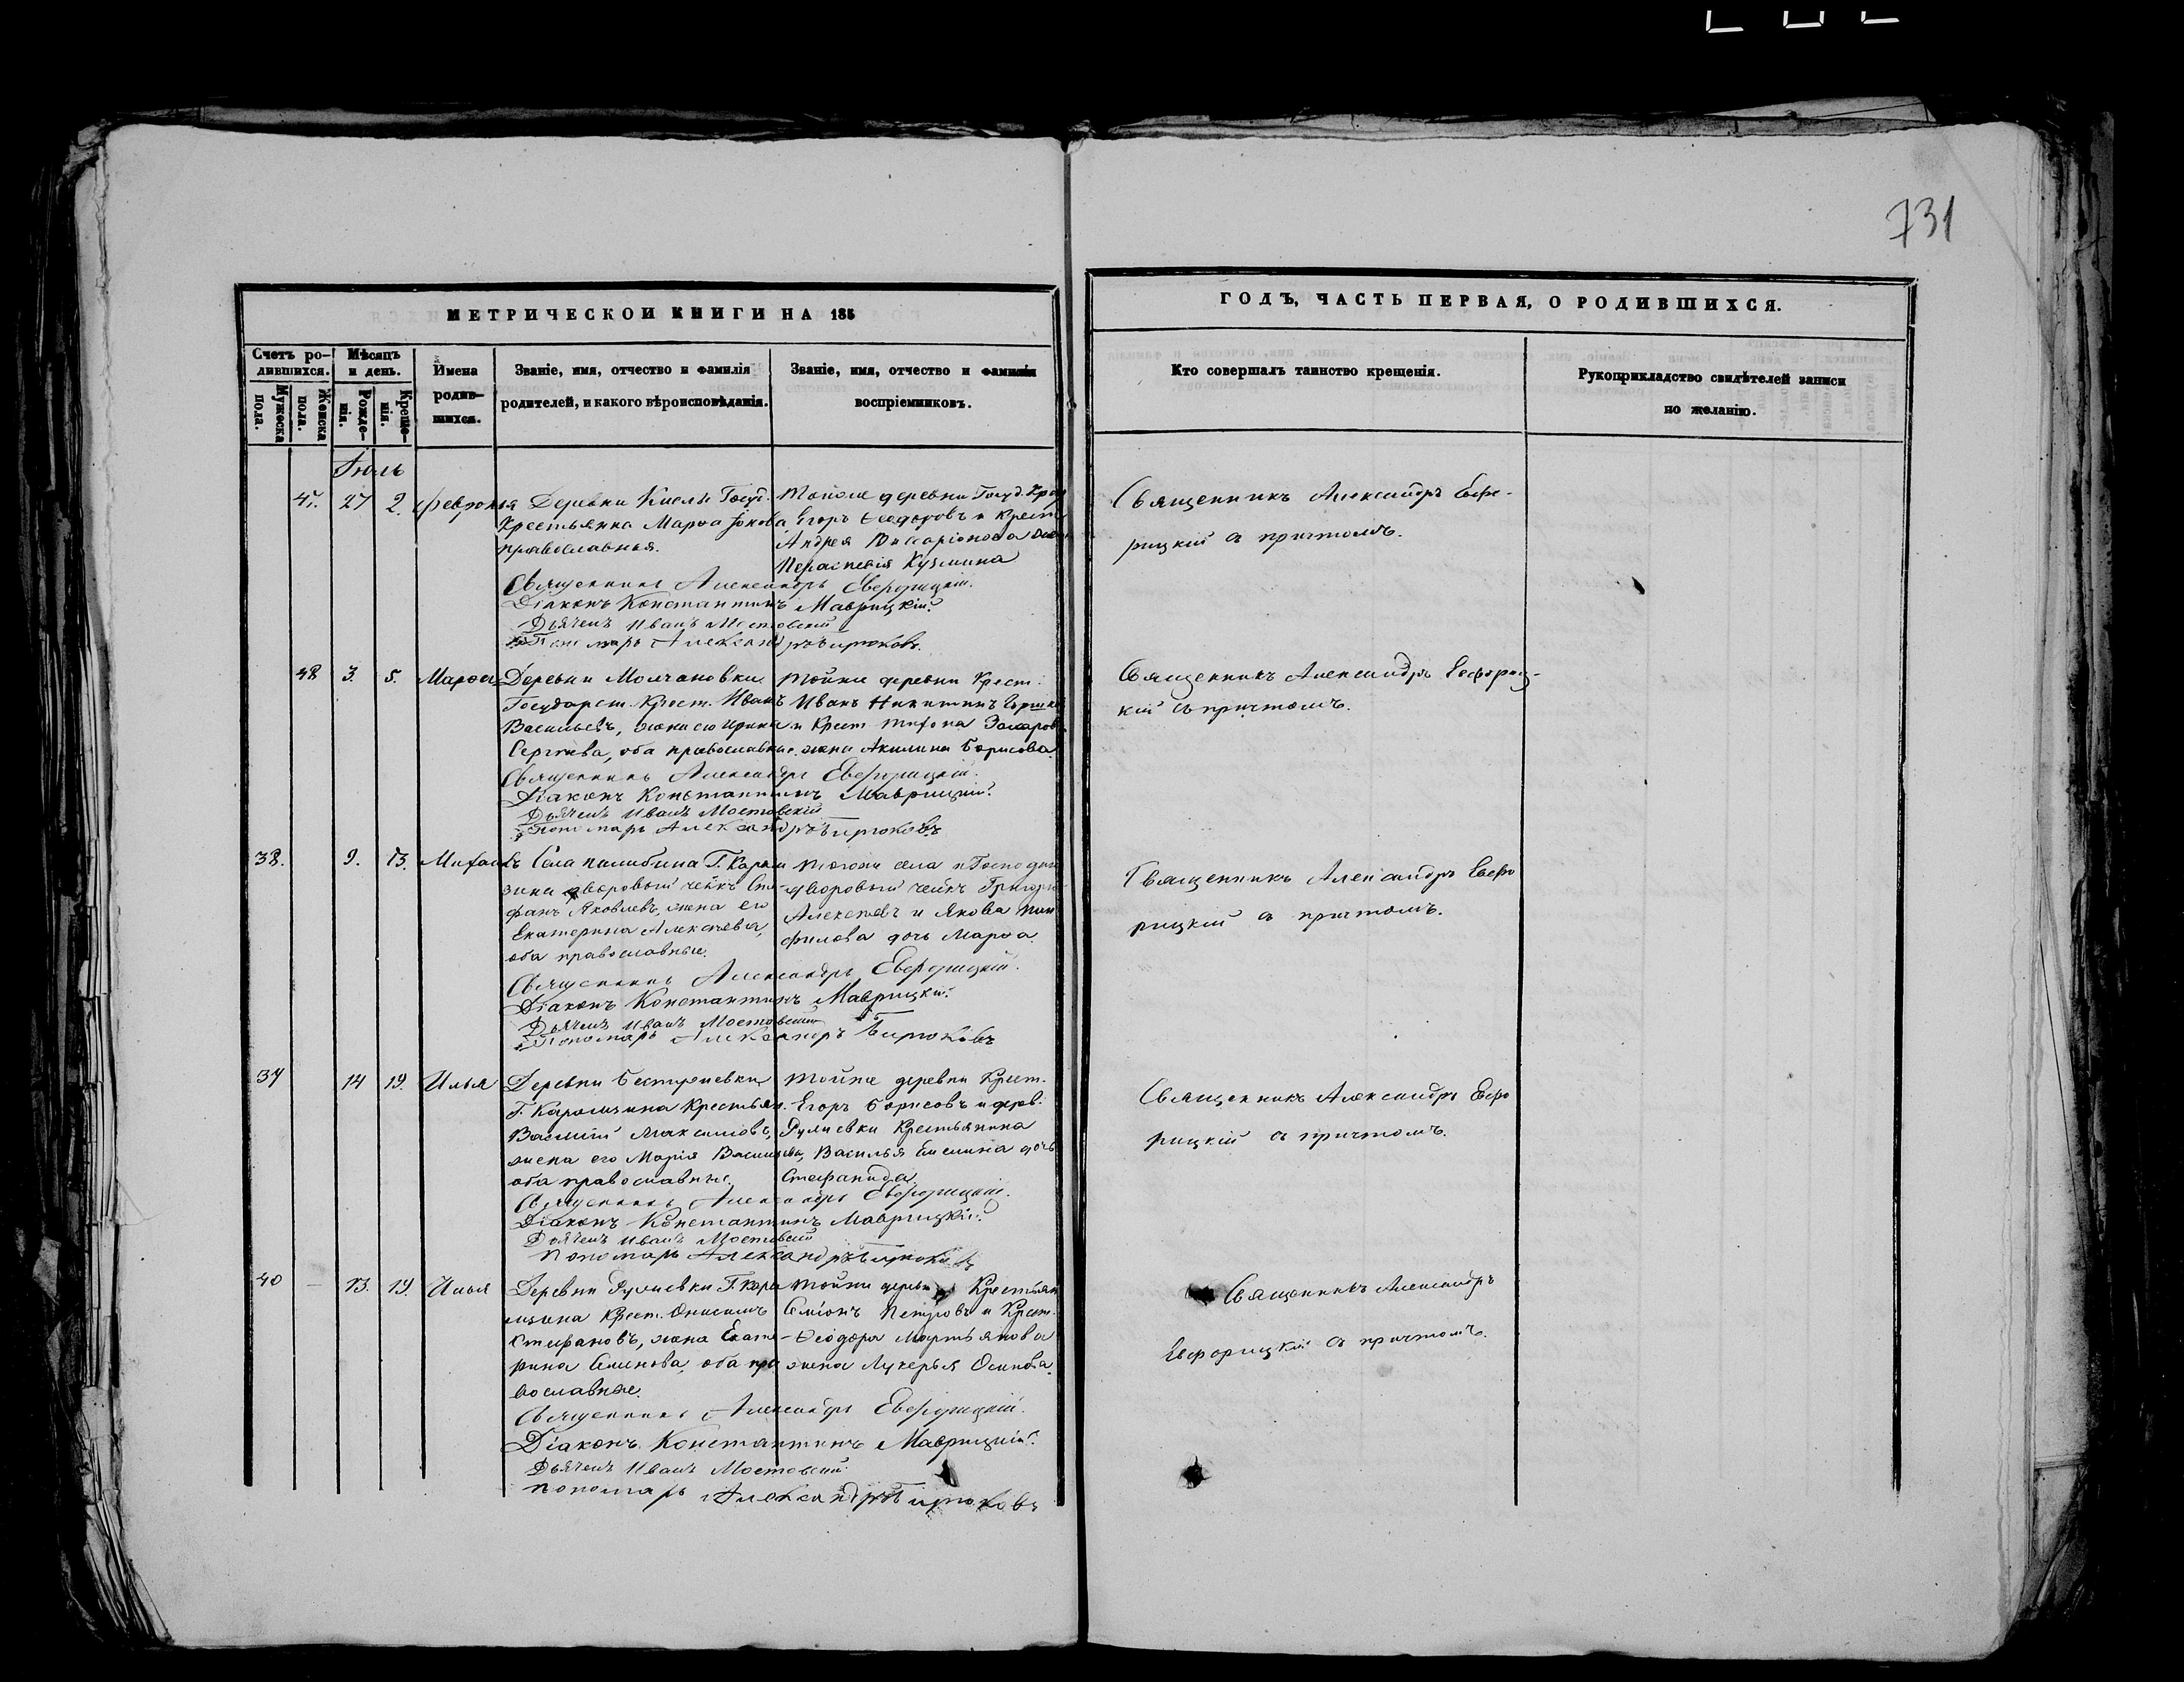 731
МЕТРИЧЕСКОЙ КНИГИ НА 185
ГОДЪ, ЧАСТЬ ПЕРВАЯ, О РОДИВШИХСЯ.
Счетъ ро-
дившихся.
Мужеска
пола.
Женска
пола.
Мѣсяцъ
и день.
Рожде-
нія.
Креще-
нія.
Имена
родив-
шихся.
Званіе, имя, отчество и фамилія
родителей, и какого вѣроисповѣданія.
Званіе, имя, отчество и фамилія
воспріемниковъ.
Кто совершалъ таинство крещенія.
Рукоприкладство свидѣтелей записи
по желанію.
Іюль
27
2.
Февронья
Деревни Госуд.
Крестьянка Марѳа
православная.
деревни Госуд.
Егоръ Ѳеодоровъ и Крест
Андрея Виссаріонова
Кузмина
Священникъ Александръ
Діаконъ Константинъ Маврицкій.
Дьячекъ Иванъ Мостовскій
Пономарь Александръ Бирюковъ.
Священникъ Александръ Евфо-
рицкій съ причтомъ.
48
3.
5.
Марѳа
Деревни Молчановки
Государст. Крест. Иванъ
Васильевъ, жена его Ирина
Сергѣева, оба православные.
тойже деревни Крест.
Иванъ Никитинъ
и Крест. Захаров
жена Акилина Борисова.
Священникъ Александръ
Діаконъ Константинъ Маврицкій.
Дьячекъ Иванъ Мостовскій
Пономарь Александръ Бирюковъ
Священникъ Александръ Евфориц-
кій съ причтомъ.
38.
9.
13.
Михаилъ
Села Палибина Г. Карам
зина дворовый Сте-
фанъ Яковлевъ, жена его
Екатерина Алексѣева,
оба православные.
тогоже села и Господин
дворовый Григорій
Алексѣевъ и Якова Пан
филова дочь Марѳа.
Священникъ Александръ
Діаконъ Константинъ Маврицкій.
Дьячекъ Иванъ Мостовскій
Пономарь Александръ Бирюковъ
Священникъ Александръ Евфо
рицкій съ причтомъ.
14
19.
Илья
Деревни
Г. Карамзина Крестьян.
Василій Максимовъ,
жена его Марія Васильева,
оба православные.
тойже деревни Крест.
Егоръ Борисовъ и дерев.
Крестьянина
Василья дочь
Стефанида.
Священникъ Александръ
Діаконъ Константинъ Маврицкій.
Дьячекъ Иванъ Мостовскій
Пономарь Александръ Бирюковъ
Священникъ Александръ Евфо
рицкій съ причтомъ.
40
13.
19.
Илья
Деревни Г. Кара
мзина Крест. Онисимъ
Стефановъ, жена Екате-
рина Семенова, оба пра
вославные.
тойже деревни Крестьян
Семіонъ Петровъ и Крест.
Ѳеодора Мартьянова
жена Лукерья Осипова.
Священникъ Александръ
Діаконъ Константинъ Маврицкій.
Дьячекъ Иванъ Мостовскій
Пономарь Александръ Бирюковъ
Священникъ Александръ
Евфорицкій съ причтомъ.